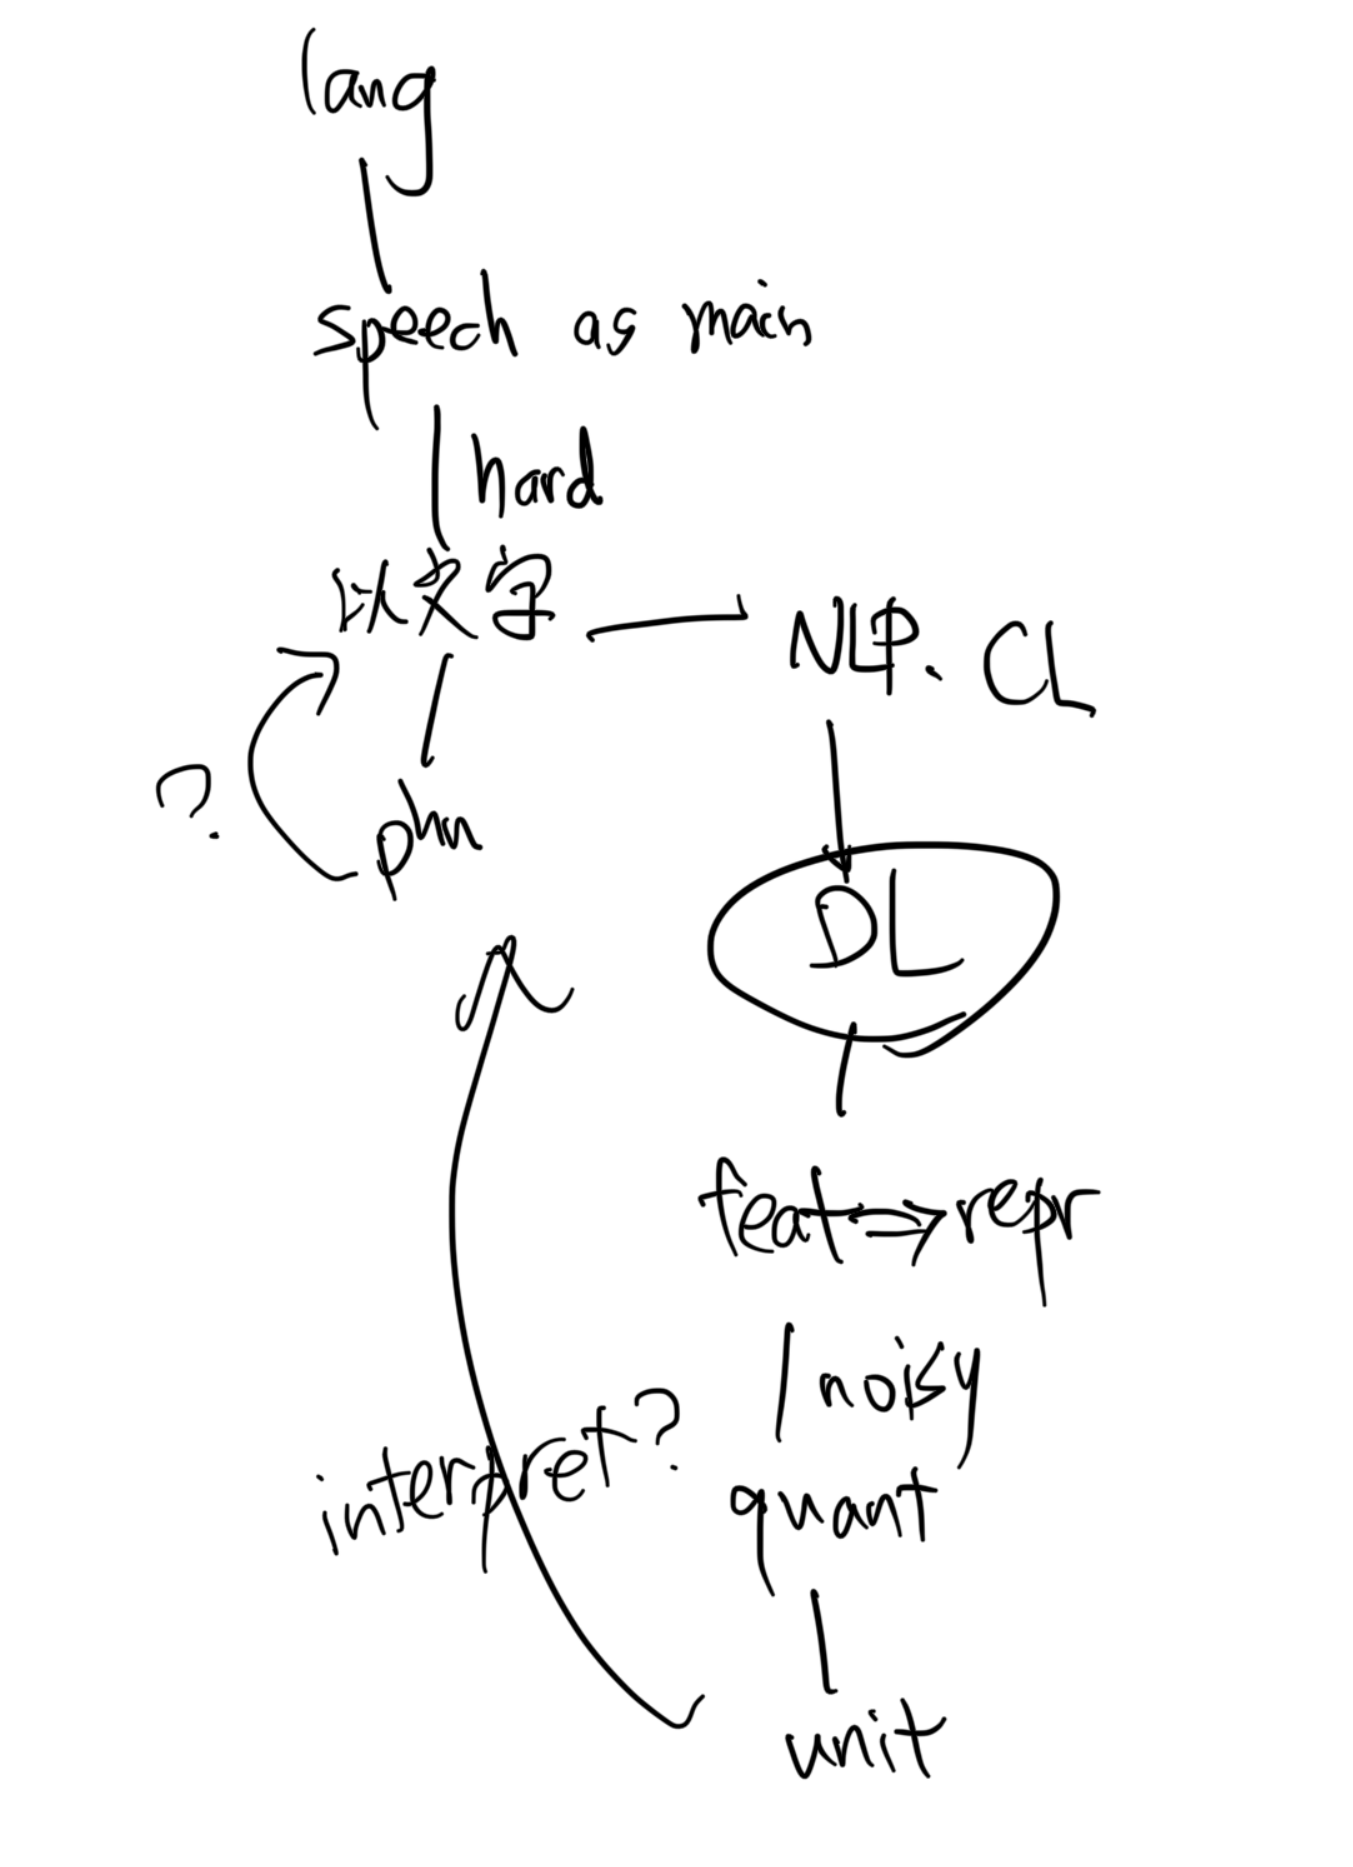 lang
speech as main
hard
以文字
NLP、CL
?
phn
DL
feat ⇒ repr
noisy
interpret?
quant
unit